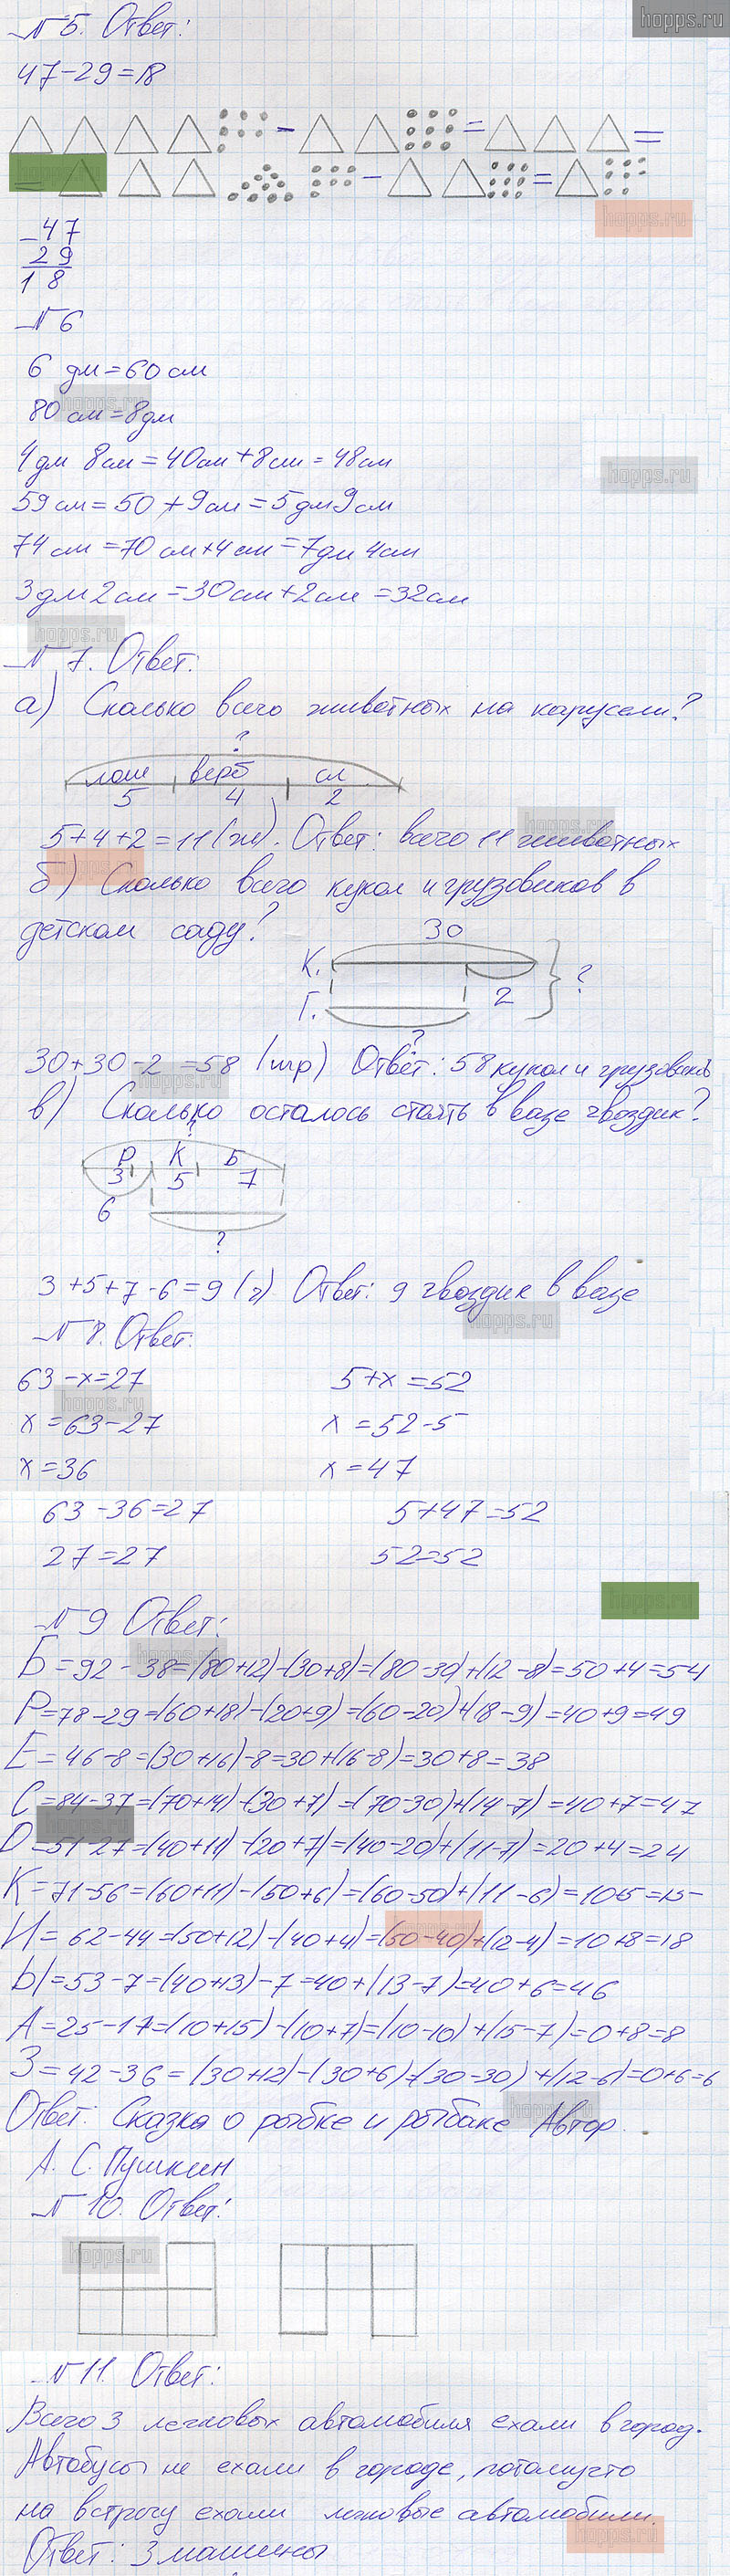 hopps.ru
№5. Ответ:
47-29=18
- = =
= - =
hopps.ru
-47
29
18
№6
6 дм = 60 см
80 см = 8 дм
4 дм 8 см = 40 см + 8 см = 48 см
hopps.ru
59 см = 50 + 9 см = 5 дм 9 см
74 см = 70 см + 4 см = 7 дм 4 см
3 дм 2 см = 30 см + 2 см = 32 см
hopps.ru
№7. Ответ:
а) Сколько всего животных на карусели?
?
лош верб сл
5 4 2
5+4+2=11 (ж). Ответ: всего 11 животных
б) Сколько всего кукол и грузовиков в
детском саду?
30
К.
2 ?
Г.
?
30+30-2=58 (игр) Ответ: 58 кукол и грузовиков
в) Сколько осталось стоять в вазе гвоздик?
?
Р К Б
3 5 7
6
?
3+5+7-6=9 (г) Ответ: 9 гвоздик в вазе
hopps.ru
№8. Ответ:
63-х=27 5+х=52
х=63-27 х=52-5
х=36 х=47
63-36=27 5+47=52
27=27 52=52
hopps.ru
№9 Ответ:
Б=92-38=(80+12)-(30+8)=(80-30)+(12-8)=50+4=54
Р=78-29=(60+18)-(20+9)=(60-20)+(18-9)=40+9=49
Е=46-8=(30+16)-8=30+(16-8)=30+8=38
С=84-37=(70+14)-(30+7)=(70-30)+(14-7)=40+7=47
О=51-27=(40+11)-(20+7)=(40-20)+(11-7)=20+4=24
К=71-56=(60+11)-(50+6)=(60-50)+(11-6)=10+5=15
И=62-44=(50+12)-(40+4)=(50-40)+(12-4)=10+8=18
Ы=53-7=(40+13)-7=40+(13-7)=40+6=46
А=25-17=(10+15)-(10+7)=(10-10)+(15-7)=0+8=8
З=42-36=(30+12)-(30+6)=(30-30)+(12-6)=0+6=6
Ответ: Сказка о рыбке и рыбаке Автор
А. С. Пушкин
№10. Ответ:
hopps.ru
№11. Ответ:
Всего 3 легковых автомобиля ехали в город.
Автобусы не ехали в городе, потому что
на встречу ехали легковые автомобили.
hopps.ru
Ответ: 3 машины